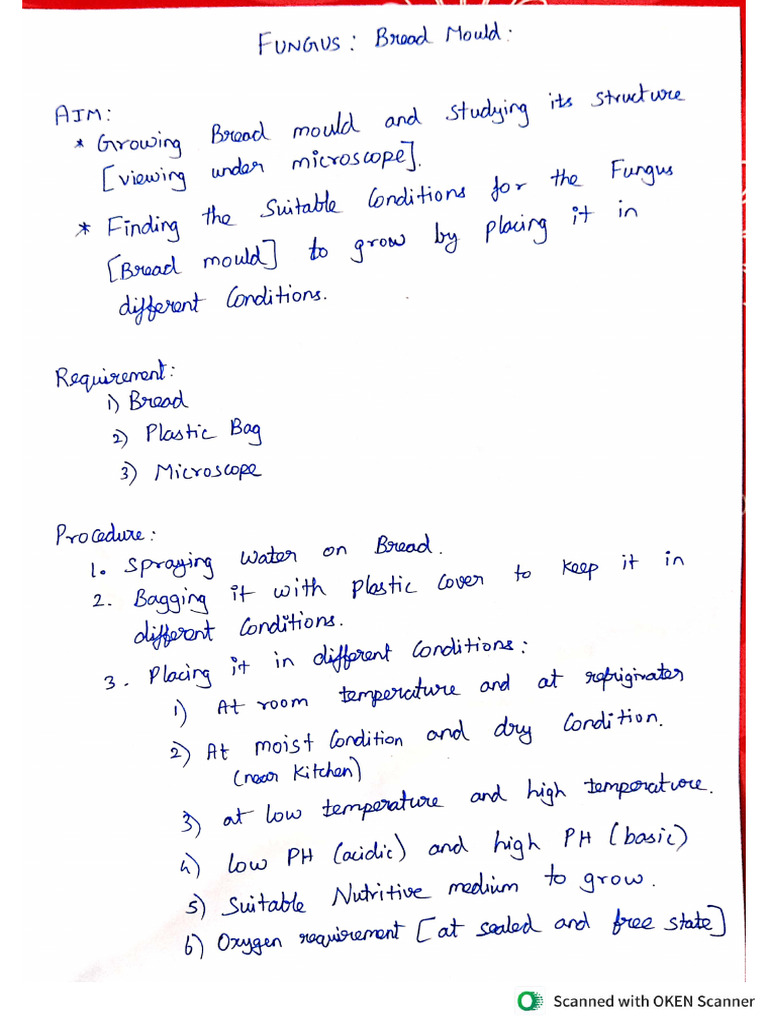 FUNGUS: Bread Mould:
AIM:
* Growing Bread mould and studying its structure
[viewing under microscope].
* Finding the Suitable Conditions for the Fungus
[Bread mould] to grow by placing it in
different Conditions.
Requirement:
1) Bread
2) Plastic Bag
3) Microscope
Procedure:
1. Spraying water on Bread.
2. Bagging it with plastic cover to keep it in
different Conditions.
3. Placing it in different conditions:
1) At room temperature and at refriginater
2) At moist Condition and dry Condition.
(near kitchen)
3) at low temperature and high temperature.
4) low PH (acidic) and high PH (basic)
5) Suitable Nutritive medium to grow.
6) Oxygen requirement [at sealed and free state]
Scanned with OKEN Scanner